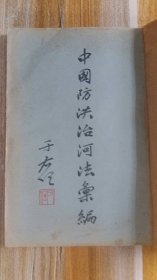 中國防洪治河法彙編
于右任